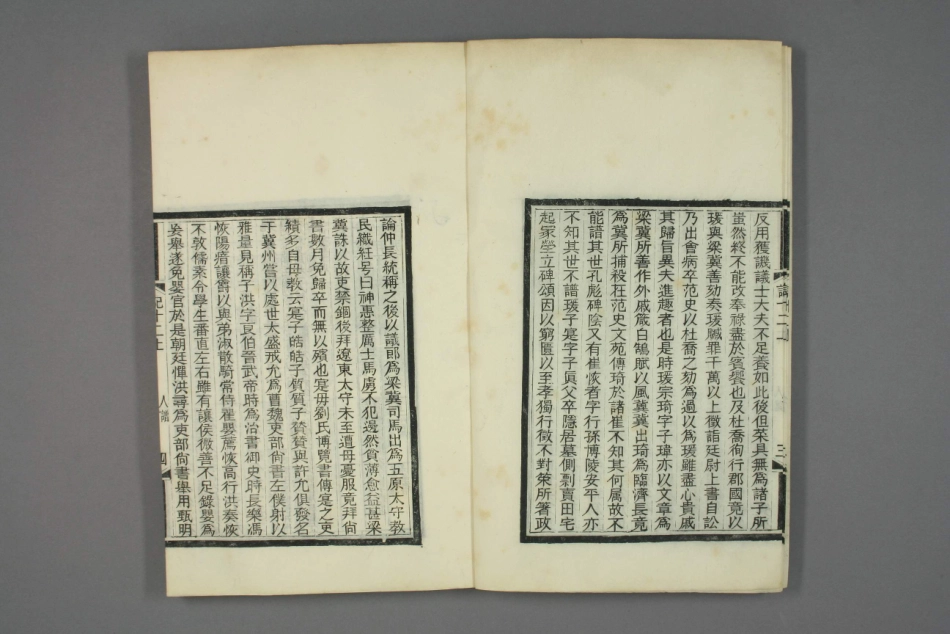 反用獲譏議士大夫不足養如此後但菜具無為諸子所
蚩然終不能改奉祿盡於賓饗也及杜喬徇行郡國竟以
瑗與梁冀善劾奏瑗贓罪千萬以上徵詣廷尉上書自訟
乃出會病卒范史以杜喬之劾為過以為瑗雖盡心貴戚
其歸旨異夫進趣者也是時瑗宗琦字子瑋亦以文章為
梁冀所善作外戚箴白鵠賦以風冀冀出琦為臨濟長竟
為冀所捕殺在范史文苑傳琦於諸崔不知其何屬故不
能譜其世孔彪碑陰又有崔恢者字行孫博陵安平人亦
不知其世不譜瑗子寔字子真父卒隱居墓側剽賣田宅
起冢塋立碑頌因以窮匱以至孝獨行徵不對策所著政
論仲長統稱之後以議郎為梁冀司馬出為五原太守教
民織紝号曰神惠整厲士馬虜不犯邊然貧薄愈益甚梁
冀誅以故吏禁錮後拜遼東太守未至遭母憂服竟拜尚
書數月免歸卒而無以殯也寔母劉氏博覽書傳寔之吏
績多自母敎云寔子皓皓子質質子贊贊與許允俱發名
于冀州嘗以處世太盛戒允為曹魏吏部尚書左僕射以
雅量見稱子洪字良伯晉武帝時為治書御史時長樂馮
恢陽瘖讓爵以與弟淑散騎常侍翟嬰薦恢高行洪奏恢
不敦儒素令學生番直左右雖有讓侯微善不足錄嬰為
妄舉遂免嬰官於是朝廷憚洪尋為吏部尚書舉用甄明